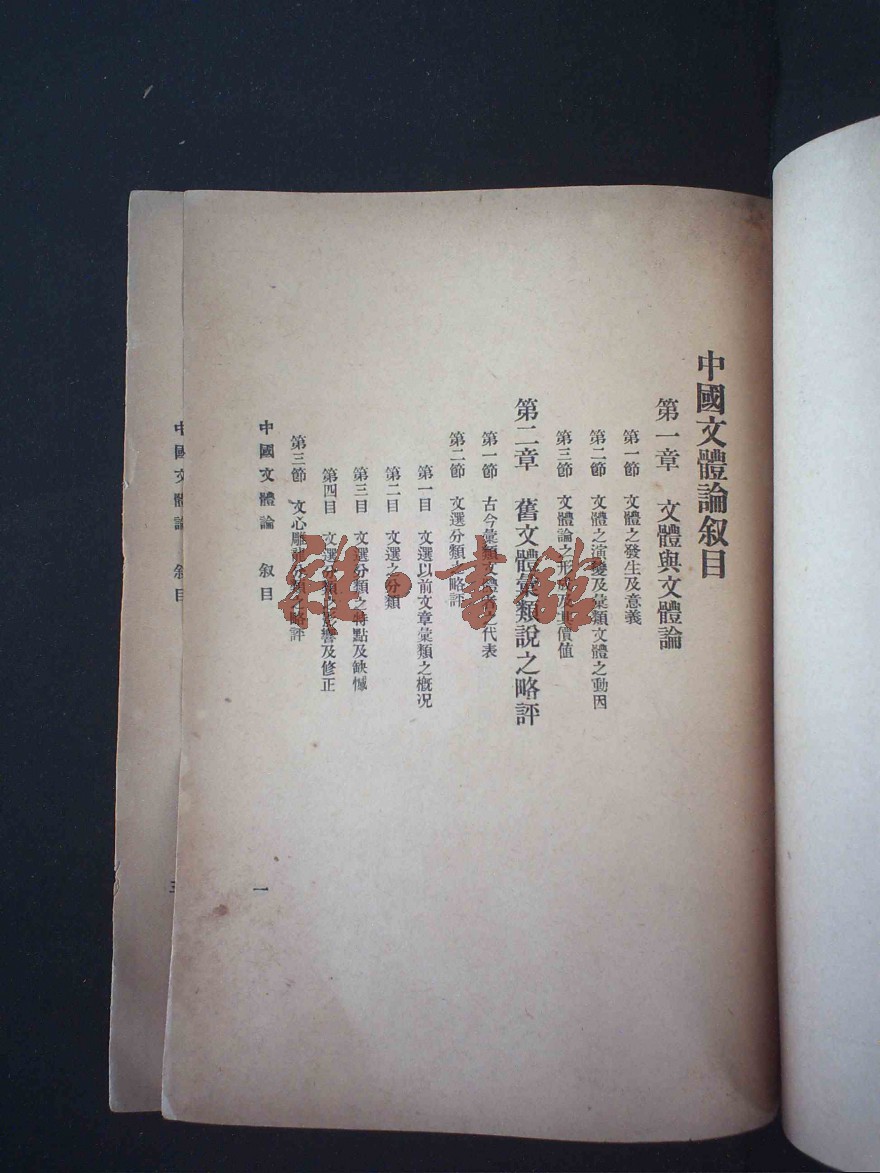 中國文體論叙目
第一章　文體與文體論
第一節　文體之發生及意義
第二節　文體之演變及彙類文體之動因
第三節　文體論之形成及其價值
第二章　舊文體彙類說之略評
第一節　古今彙類文體者之代表
第二節　文選分類之略評
第一目　文選以前文章彙類之概况
第二目　文選之分類
第三目　文選分類之特點及缺憾
第四目　文選分類之影響及修正
第三節　文心雕龍分類之略評
中國文體論　叙目
一
中國文體論　叙目
三
雜·書館